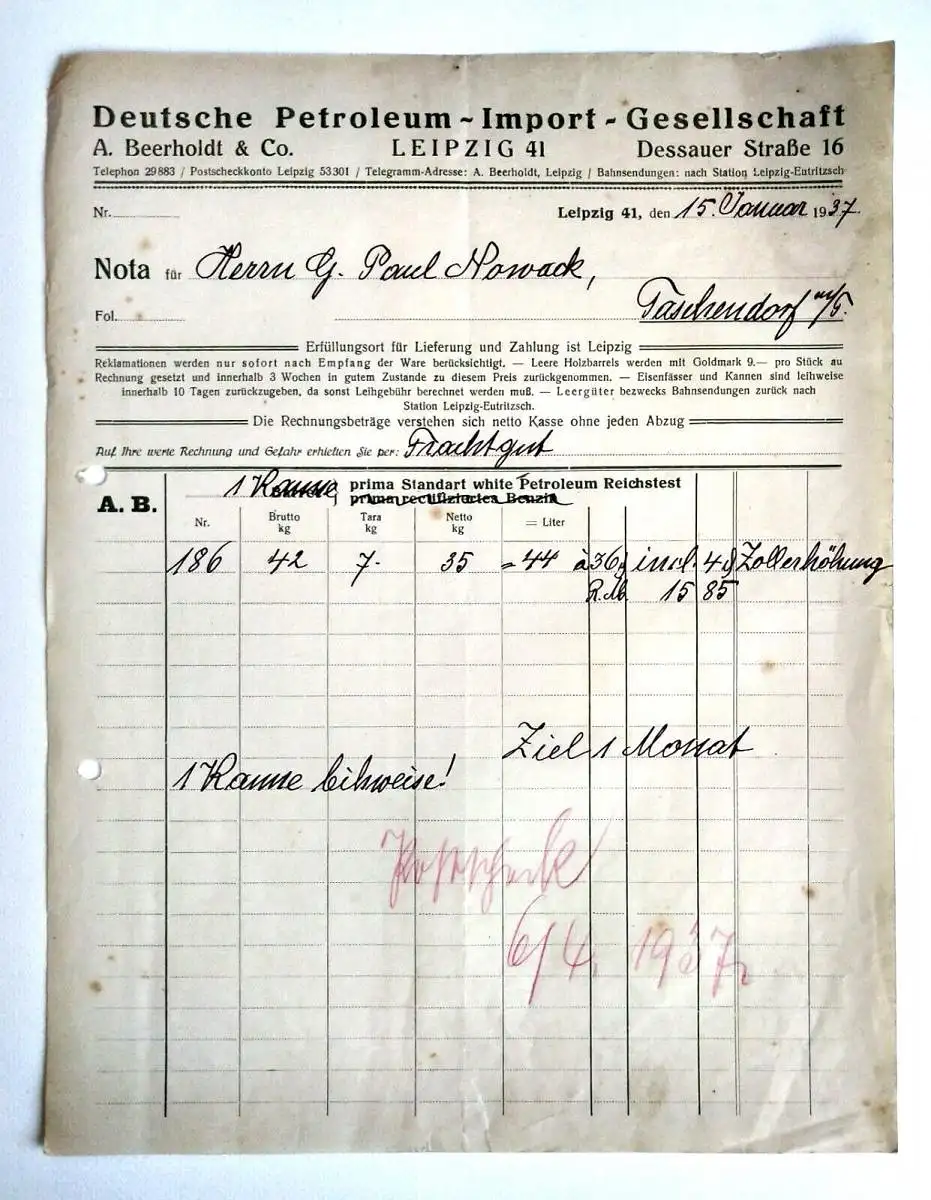 Deutsche Petroleum - Import - Gesellschaft
A. Beerholdt & Co. LEIPZIG 41 Dessauer Straße 16
Telephon 29883 / Postscheckkonto Leipzig 53301 / Telegramm-Adresse: A. Beerholdt, Leipzig / Bahnsendungen: nach Station Leipzig-Eutritzsch
Nr. Leipzig 41, den 15. Januar 1937.
Nota für Herrn G. Paul Nowack,
Fol. Taschendorf
Erfüllungsort für Lieferung und Zahlung ist Leipzig
Reklamationen werden nur sofort nach Empfang der Ware berücksichtigt. — Leere Holzbarrels werden mit Goldmark 9.— pro Stück au
Rechnung gesetzt und innerhalb 3 Wochen in gutem Zustande zu diesem Preis zurückgenommen. — Eisenfässer und Kannen sind leihweise
innerhalb 10 Tagen zurückzugeben, da sonst Leihgebühr berechnet werden muß. — Leergüter bezwecks Bahnsendungen zurück nach
Station Leipzig-Eutritzsch.
Die Rechnungsbeträge verstehen sich netto Kasse ohne jeden Abzug
Auf Ihre werte Rechnung und Gefahr erhielten Sie per: Frachtgut
A. B. 1 Kanne prima Standart white Petroleum Reichstest
prima rectifiziertes Benzin
Nr. Brutto kg Tara kg Netto kg = Liter
186 42 7.- 35 = 44 à 36 incl. 4 Zollerhöhung
R.M. 15 85
Ziel 1 Monat
1 Kanne leihweise!
Postscheck
6/4. 1937.